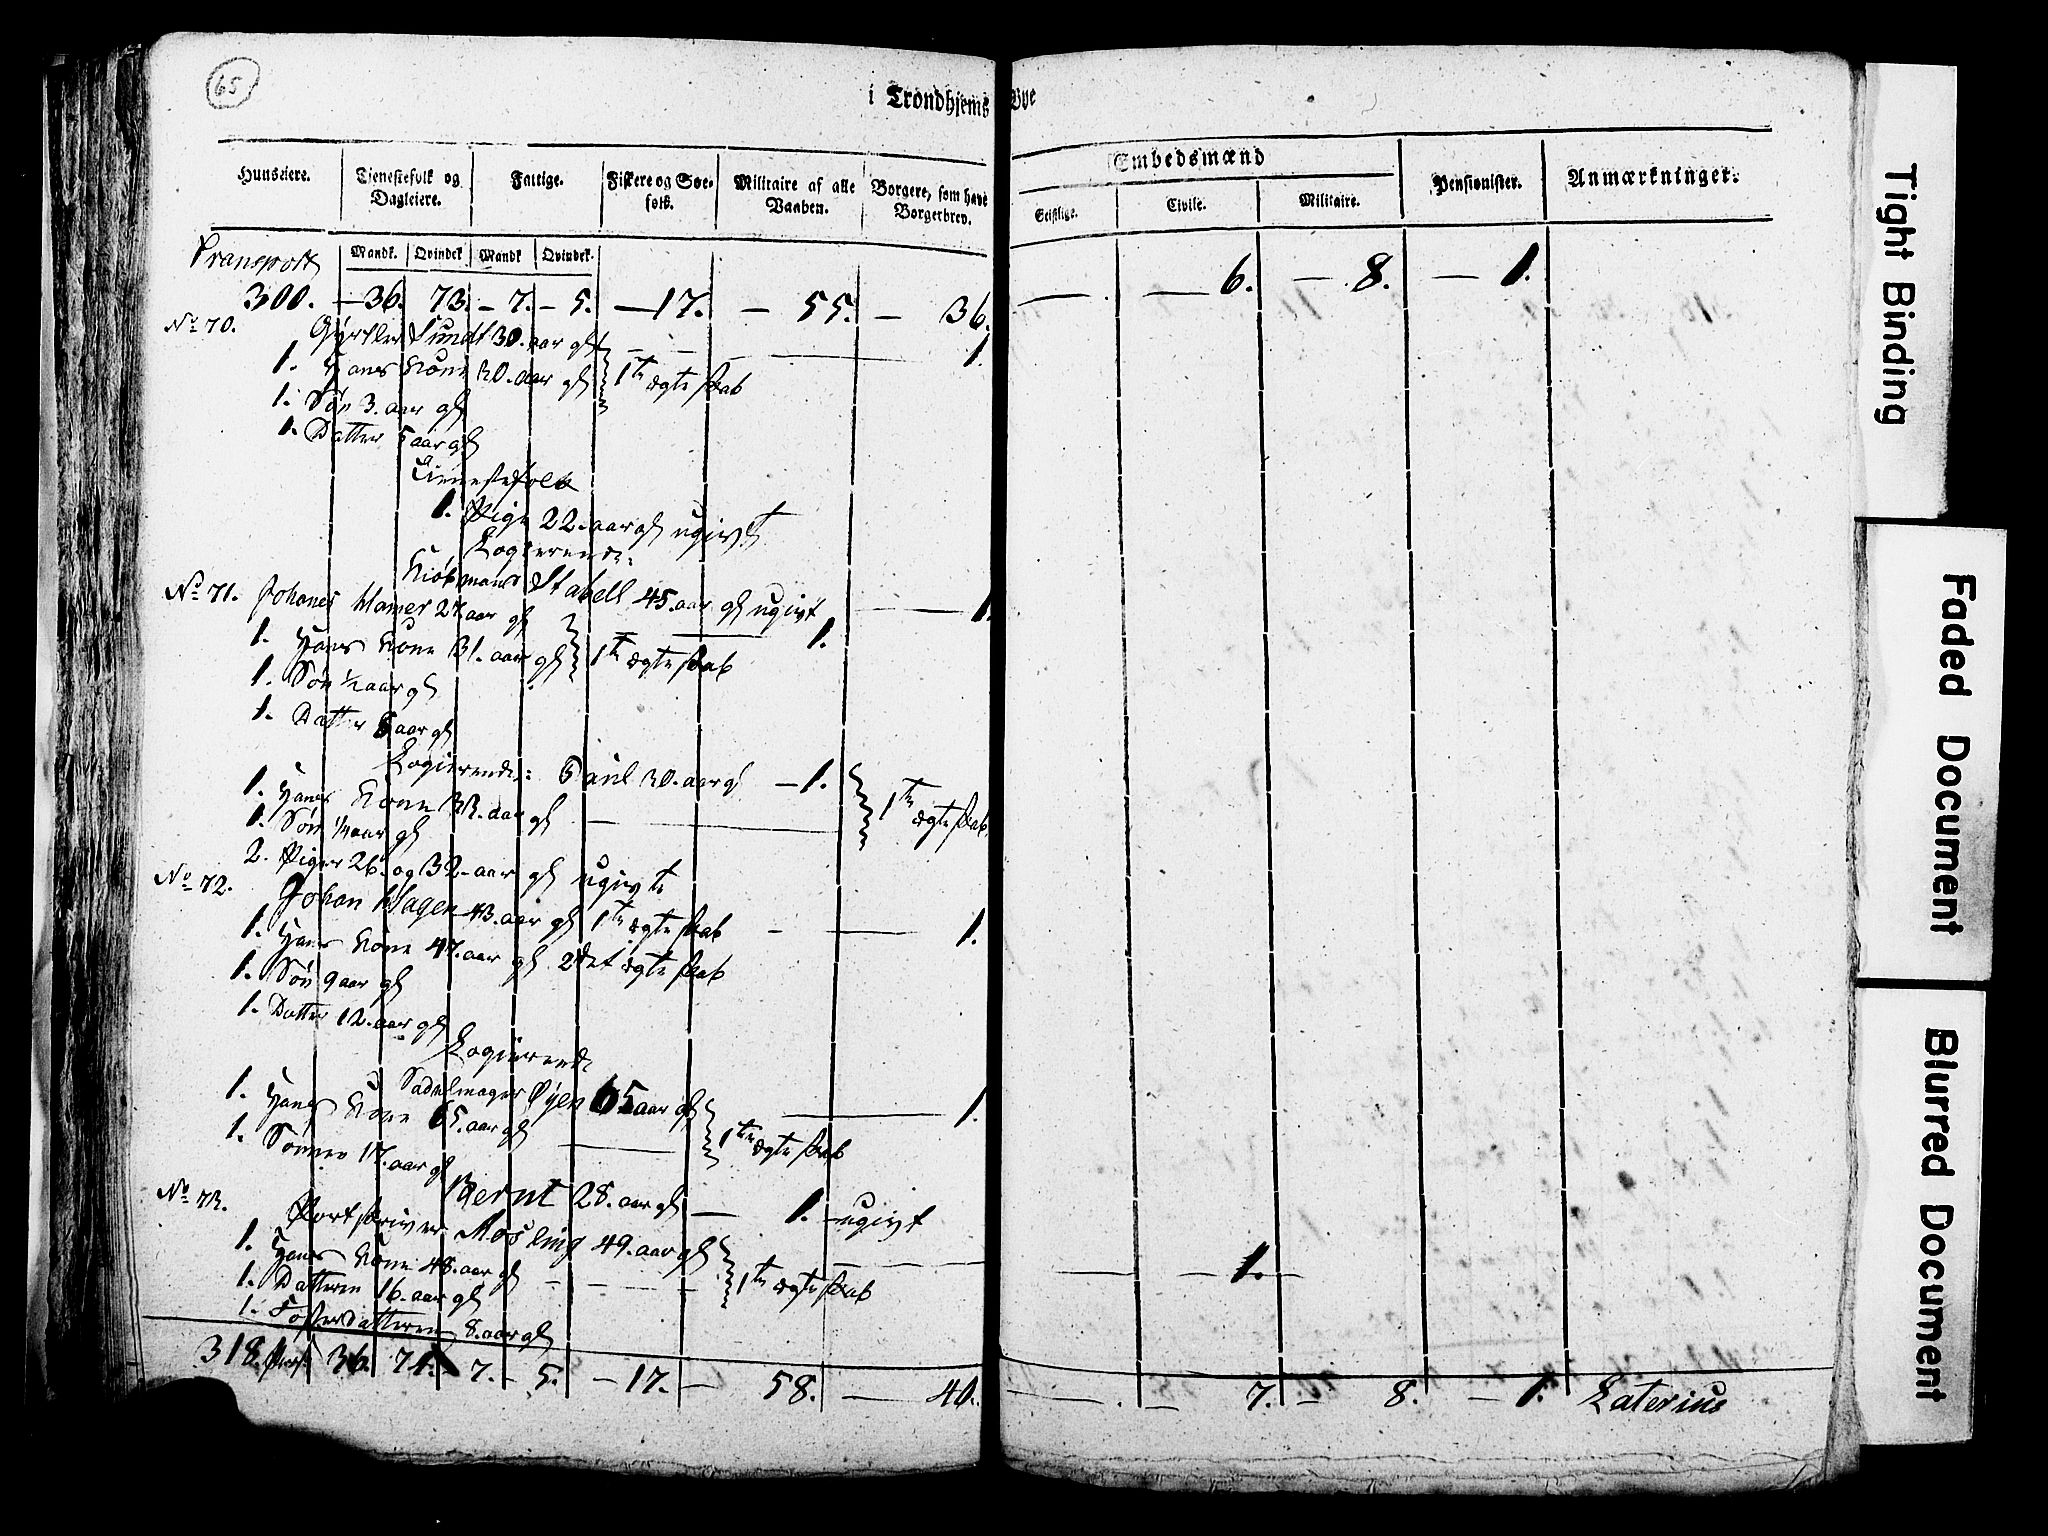 65
i Trondhjems Bye
Huuseiere. Tienestefolk og Dagleiere. Fattige. Fiskere og Søe-folk. Militaire af alle Vaaben. Borgere, som have Borgerbrev. Embedsmænd Pensionister. Anmærkninger.
Geistlige. Civile. Militaire.
Mandk. Qvindek Mandk Qvindek.
Transport
300. — 36. 73. — 7. — 5. — 17. — 55. — 36. — 6. — 8. — 1.
No 70. Gyrtler Sundt 30. aar gl 1
1. Hans Kone 30. aar gl 1te ægteskab
1. Søn 3. aar gl
1. Datter 5 aar gl
Tienestefolk
1. Pige 22. aar gl ugivt
Logierende:
Kiøbmand Stabell 45. aar gl ugivt 1
No 71. Johanes 27. aar gl 1.
1. Hans Kone 31. aar gl 1te ægteskab
1. Søn 1/2 aar gl
1. Datter 6 aar gl
Logierende: Paul 30. aar gl — 1.
1. Hans Kone 33. aar gl 1te ægteskab
1. Søn 1/4 aar gl
2. Piger 26. og 32. aar gl ugivte
No 72. Johan Hagen 43. aar gl 1te ægteskab 1.
1. Hans Kone 47. aar gl 2det ægteskab
1. Søn 9 aar gl
1. Datter 12. aar gl
Logierende
Sadelmager Øyen 65 aar gl 1.
1. Hans Kone 65. aar gl 1te ægteskab
1. Sønnen 17. aar gl
Bernt 28. aar gl — 1. ugivt
No 73. Portskriver Mosling 49. aar gl 1.
1. Hans Kone 48. aar gl 1te ægteskab
1. Datteren 16. aar gl
1. Fosterdatteren 8. aar gl
318. 36. 74. 7. — 5. — 17. — 58. — 40. — 7. — 8. — 1. Laterius
Tight Binding
Faded Document
Blurred Document